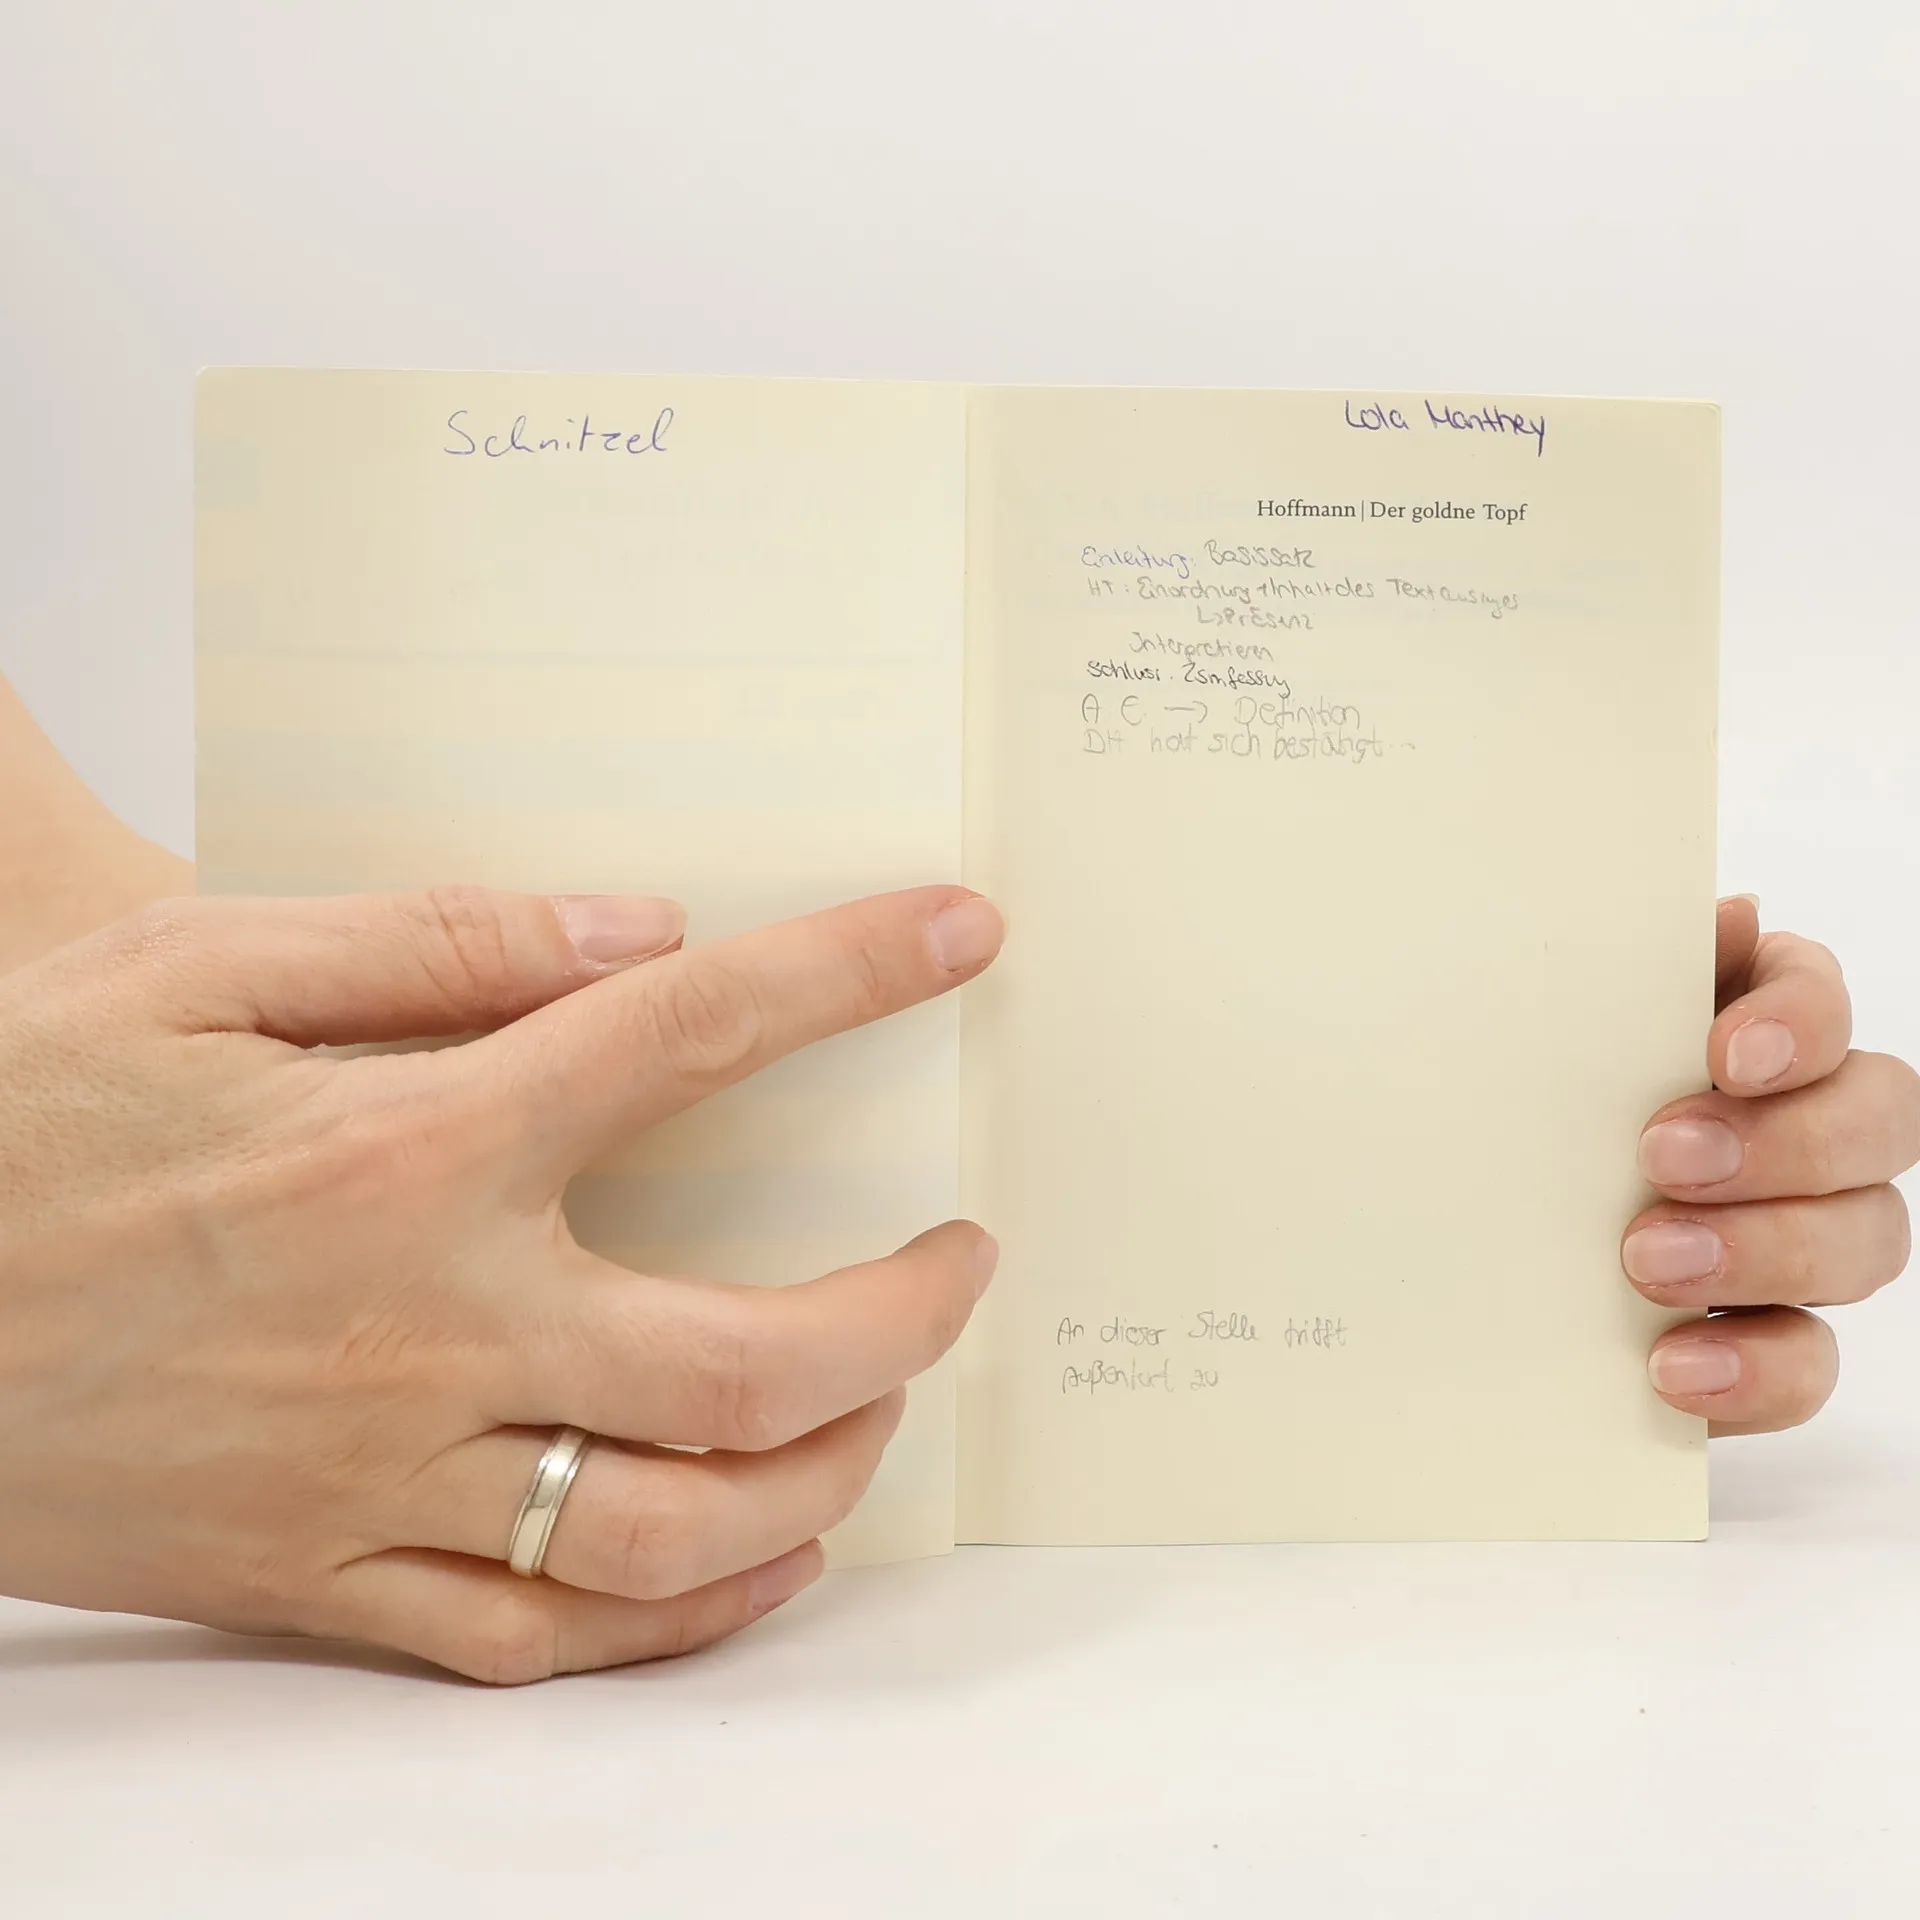 Schnitzel
Lola Manthey
Hoffmann | Der goldne Topf
Einleitung: Basissatz
HT: Einordnung + Inhalt des Textauszuges
↳ Präsenz
Interpretieren
Schluss: Zsmfassung
A E → Definition
DH hat sich bestätigt...
An dieser Stelle trifft
zu